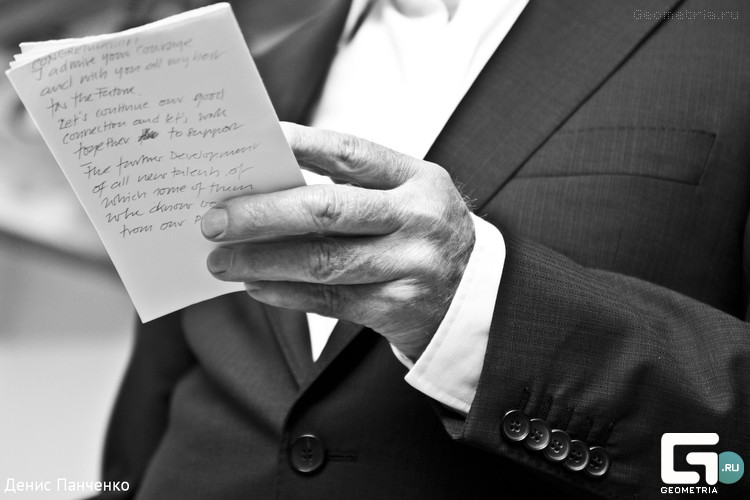 Geometria.ru
CONGRATULATION!
I admire your Courage
and wish you all my best
for the Future.
Let's continue our good
connection and let's work
together to support
The further Development
of all new talents of
which some of them
who
from our
Денис Панченко
G .RU
GEOMETRIA